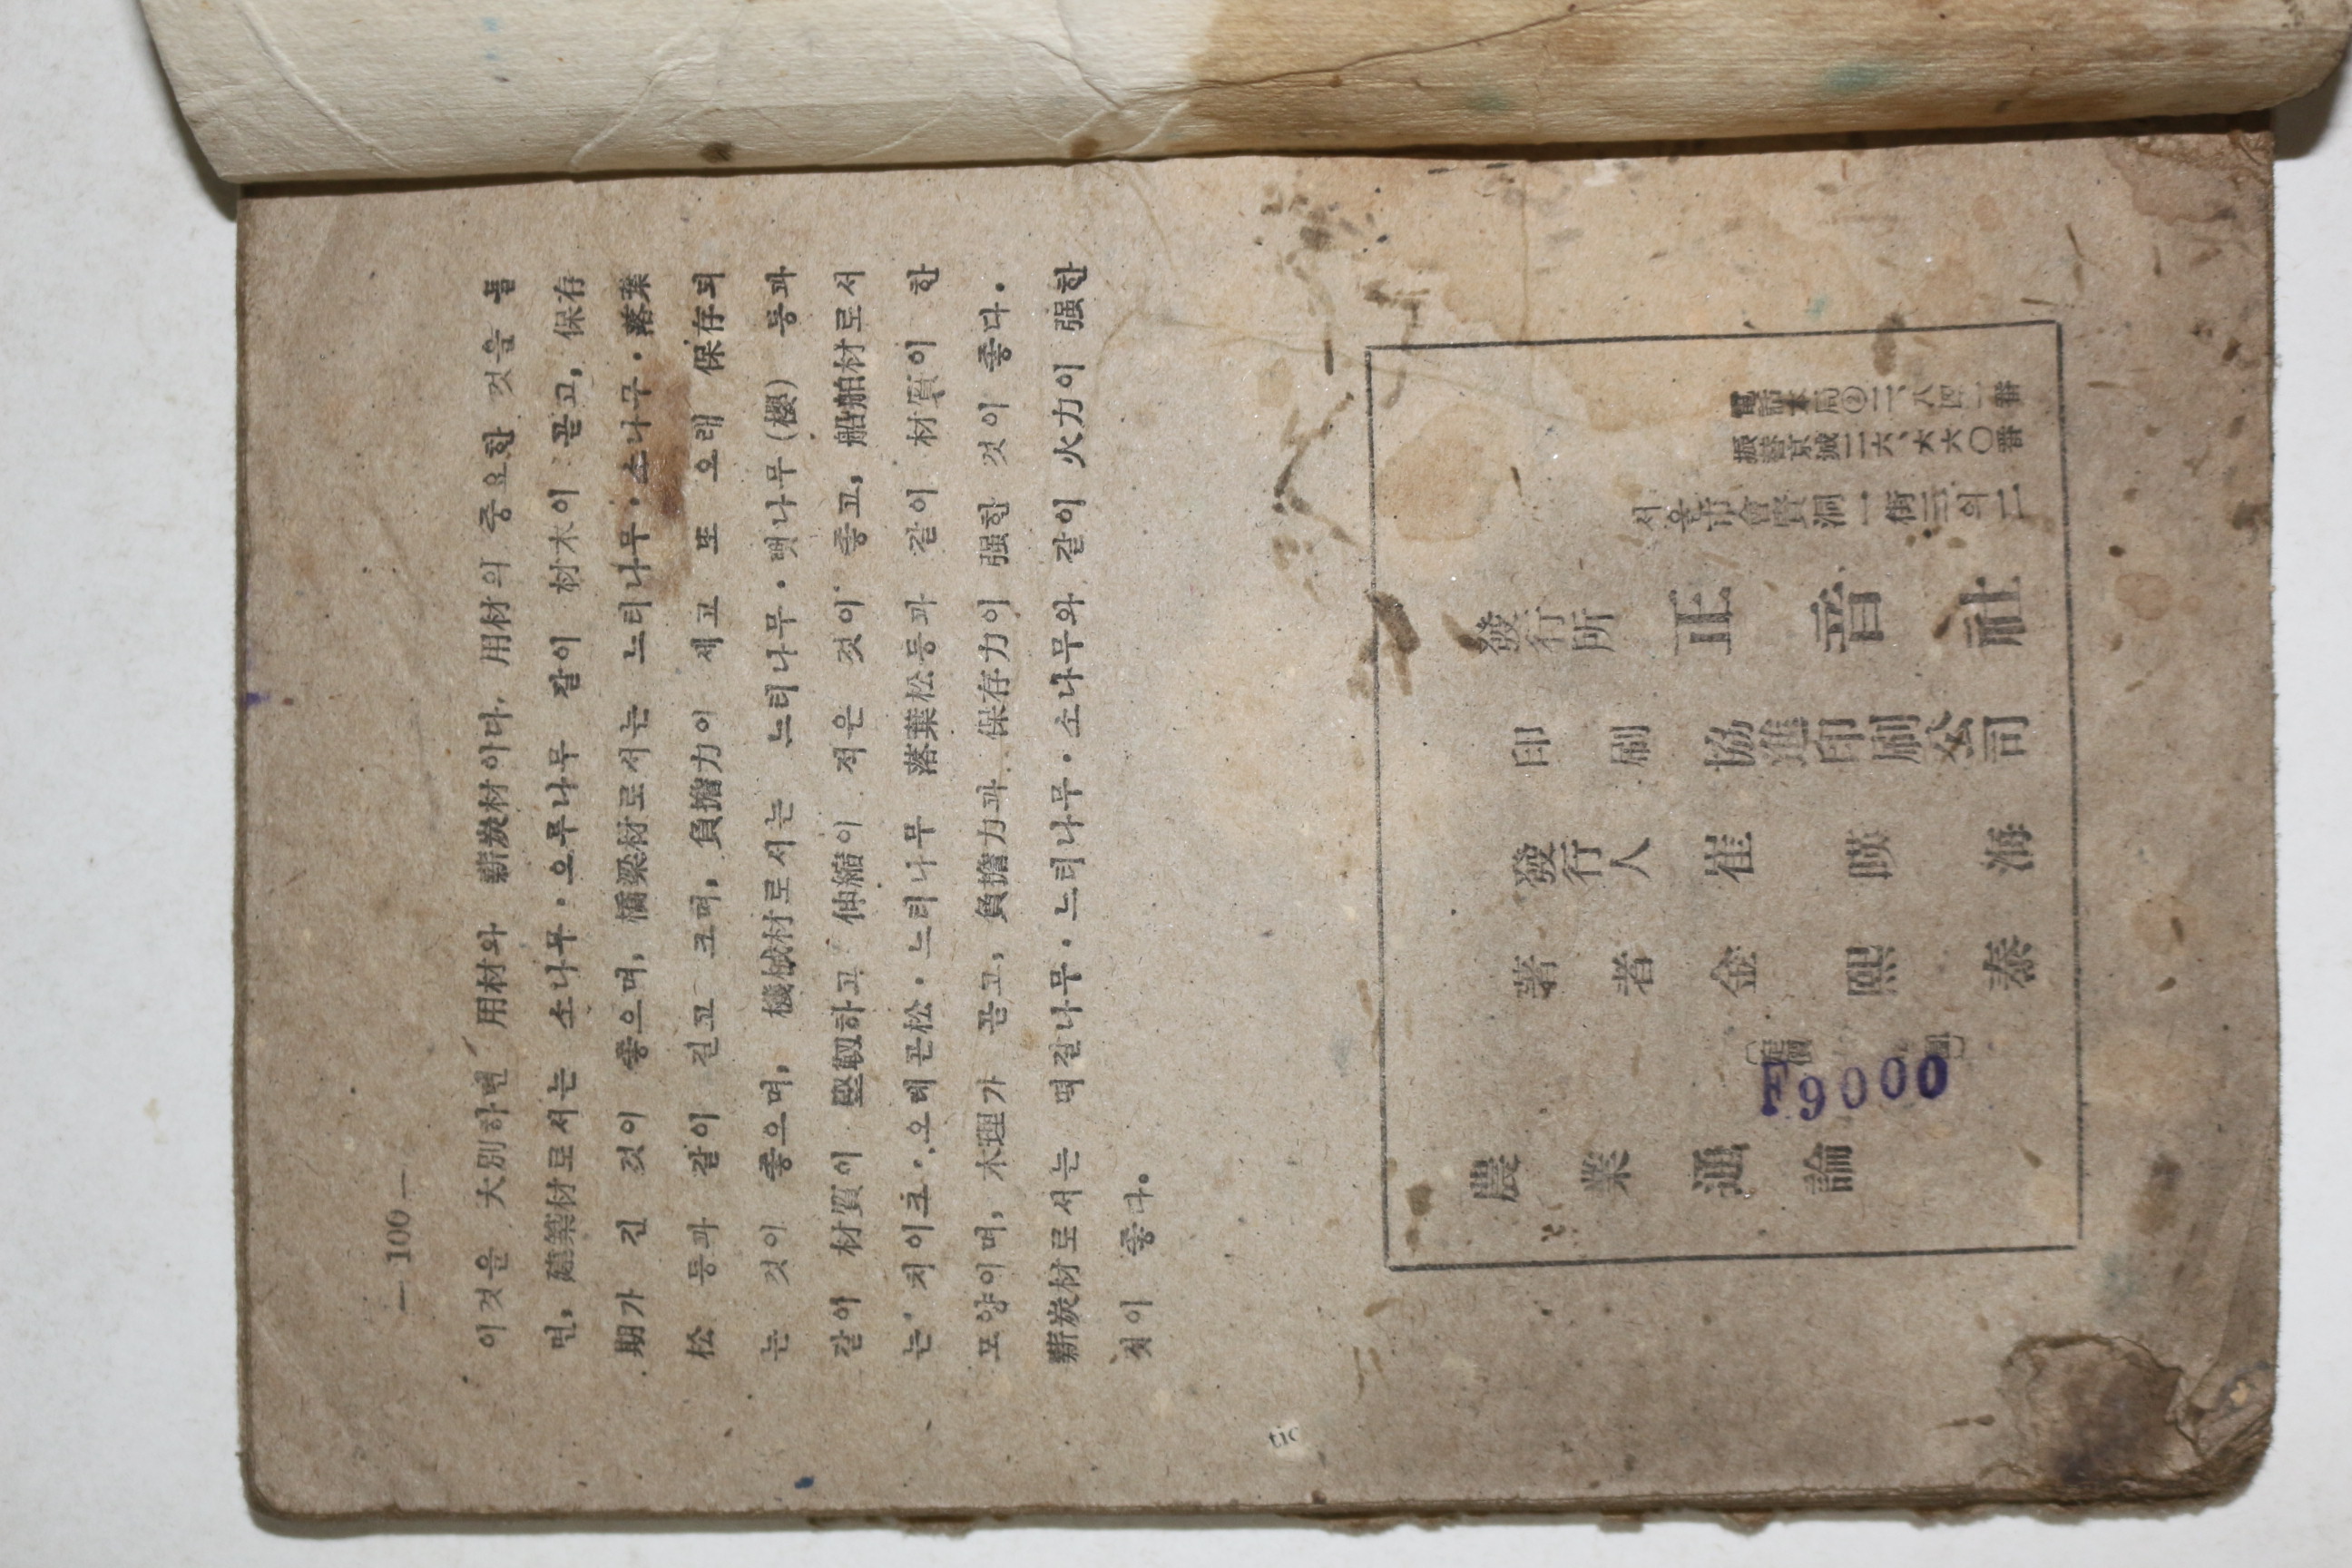 — 100 —
이것을 大別하면 用材와 薪炭材이다. 用材의 중요한 것을 들
면, 建築材로서는 소나무·오루나무 같이 材木이 곧고, 保存
期가 긴 것이 좋으며, 橋梁材로서는 느티나무·소나무·落葉
松 등과 같이 길고 크며, 負擔力이 세고 또 오래 保存되
는 것이 좋으며, 機械材로서는 느티나무·벗나무(櫻) 등과
같이 材質이 堅靭하고 伸縮이 적은 것이 좋고, 船舶材로서
는 치이크·오레곤松·느티나무 落葉松등과 같이 材質이 한
모양이며, 木理가 곧고, 負擔力과 保存力이 强한 것이 좋다.
薪炭材로서는 떡갈나무·느티나무·소나무와 같이 火力이 强한
것이 좋다.
農業通論
定價
9000
著者 金熙泰
發行人 崔暎海
印刷 協進印刷公司
發行所 正音社
서울市會賢洞一街三의二
振替京城二六、六六〇番
電話本局②二、八四二番
tic